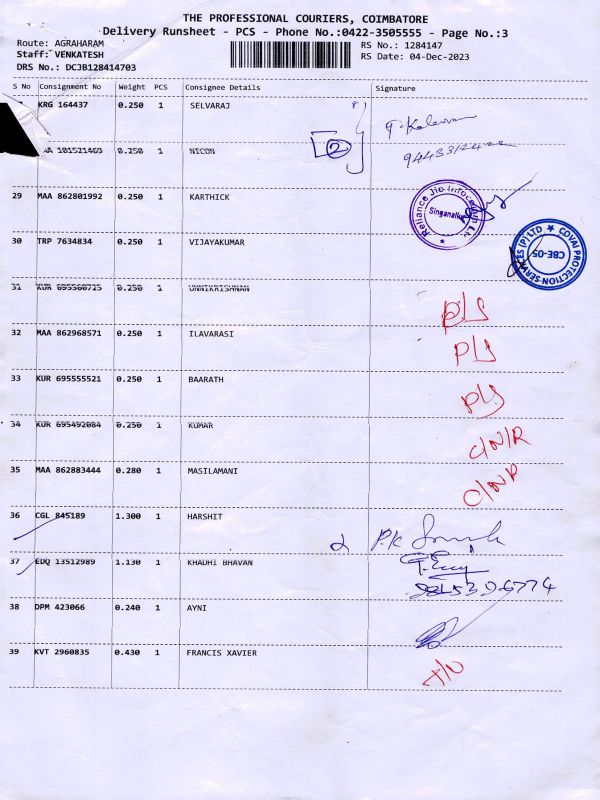 THE PROFESSIONAL COURIERS, COIMBATORE
Delivery Runsheet - PCS - Phone No.:0422-3505555 - Page No.:3
Route: AGRAHARAM
Staff: VENKATESH
DRS No.: DCJB128414703
RS No.: 1284147
RS Date: 04-Dec-2023
S No Consignment No Weight PCS Consignee Details Signature
KRG 164437 0.250 1 SELVARAJ
101521463 0.250 1 NICON
2
29 MAA 862801992 0.250 1 KARTHICK
Reliance Jio Infocomm Singanallur
30 TRP 7634834 0.250 1 VIJAYAKUMAR
COVAI PROTECTION SERVICES (P) LTD CBE-05
31 KUR 695560725 0.250 1 UNNIKRISHNAN
P/S
32 MAA 862968571 0.250 1 ILAVARASI
P/S
33 KUR 695555521 0.250 1 BAARATH
P/S
34 KUR 695492084 0.250 1 KUMAR
C/N/R
35 MAA 862883444 0.280 1 MASILAMANI
C/N/R
36 CGL 845189 1.300 1 HARSHIT
P.K
37 EDQ 13512989 1.130 1 KHADHI BHAVAN
38 DPM 423066 0.240 1 AYNI
39 KVT 2960835 0.430 1 FRANCIS XAVIER